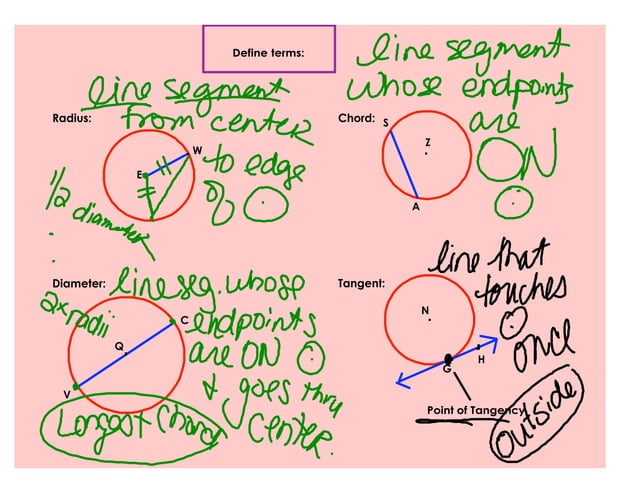 Define terms:
line segment
Radius:
from center
W
to edge
E
of ⊙
1/2 diameter
line segment
whose endpoints
Chord:
are
S
Z
ON
⊙
A
Diameter:
line seg. whose
2x radii
C
endpoints
Q
are ON ⊙
V
& goes thru
Longest Chord
center.
Tangent:
line that
touches
N
⊙
once
H
G
Point of Tangency
outside